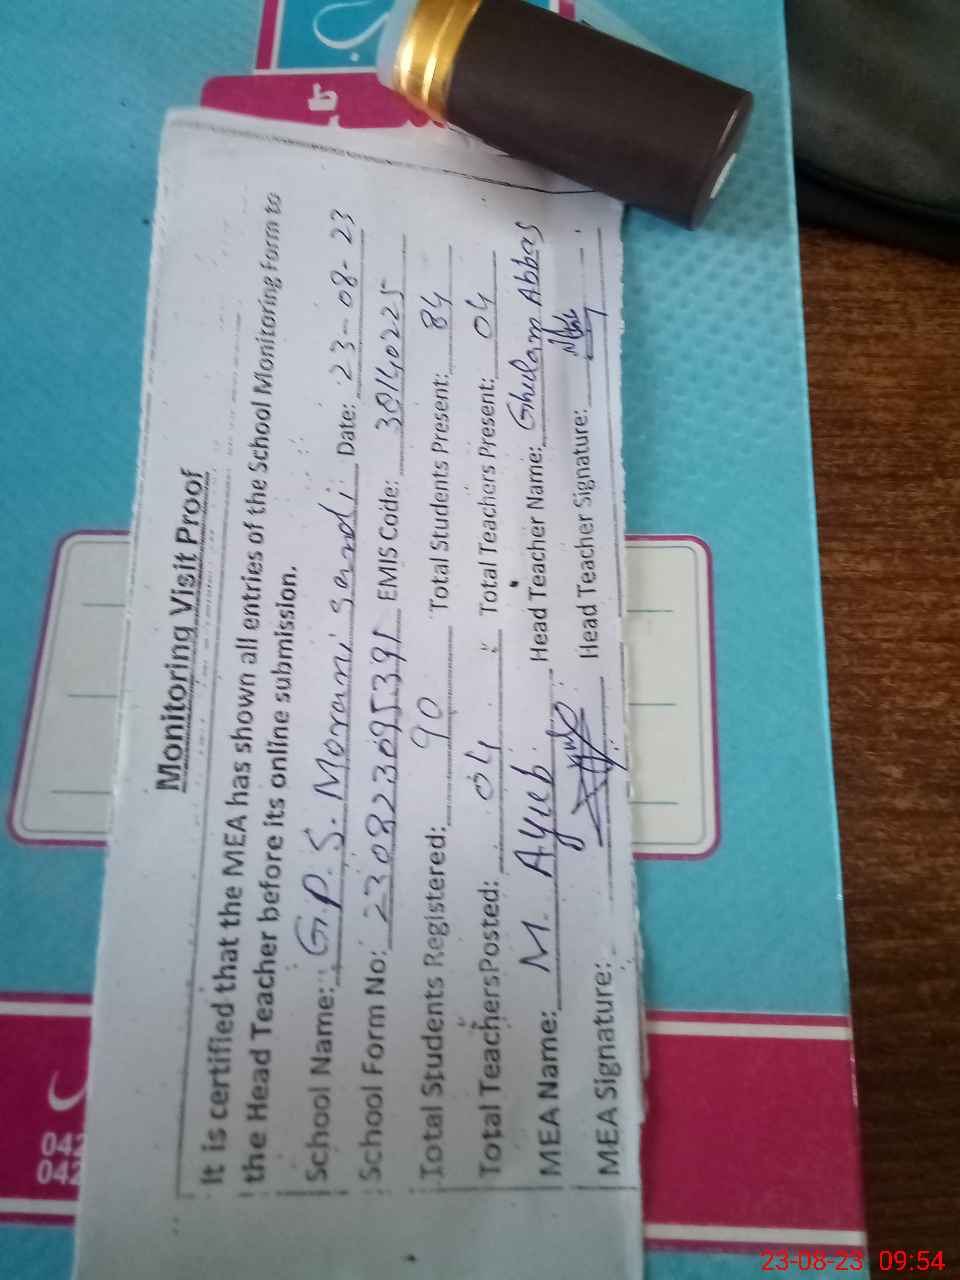 Monitoring Visit Proof
It is certified that the MEA has shown all entries of the School Monitoring Form to
the Head Teacher before its online submission.
School Name: G.P.S. Morani Sandi Date: 23-08-23
School Form No: 230823095391 EMIS Code: 30140225
Total Students Registered: 90 Total Students Present: 84
Total Teachers Posted: 04 Total Teachers Present: 04
MEA Name: M. Ayub Head Teacher Name: Ghulam Abbas
MEA Signature: Head Teacher Signature:
042
042
23-08-23 09:54